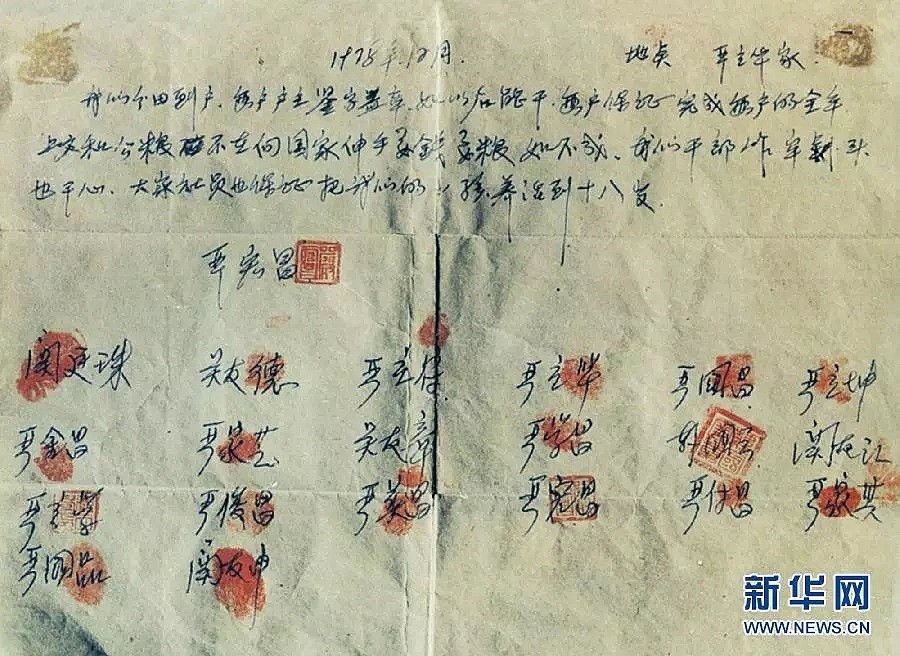 1978年12月. 地点 严立华家.
我们分田到户. 每户户主签字盖章. 如以后能干. 每户保证完成每户的全年
上交和公粮 不在向国家伸手要钱要粮 如不成. 我们干部作牢剎头
也干心. 大家社员也保证把我们的小孩养活到十八岁.
严宏昌
关廷珠 关友德 严立符 严立华 严国昌 严立坤
严金昌 严家芝 关友章 严学昌 韩国云 关友江
严立学 严俊昌 严美昌 严宏昌 严付昌 严家其
严国品 关友申
新华网
WWW.NEWS.CN